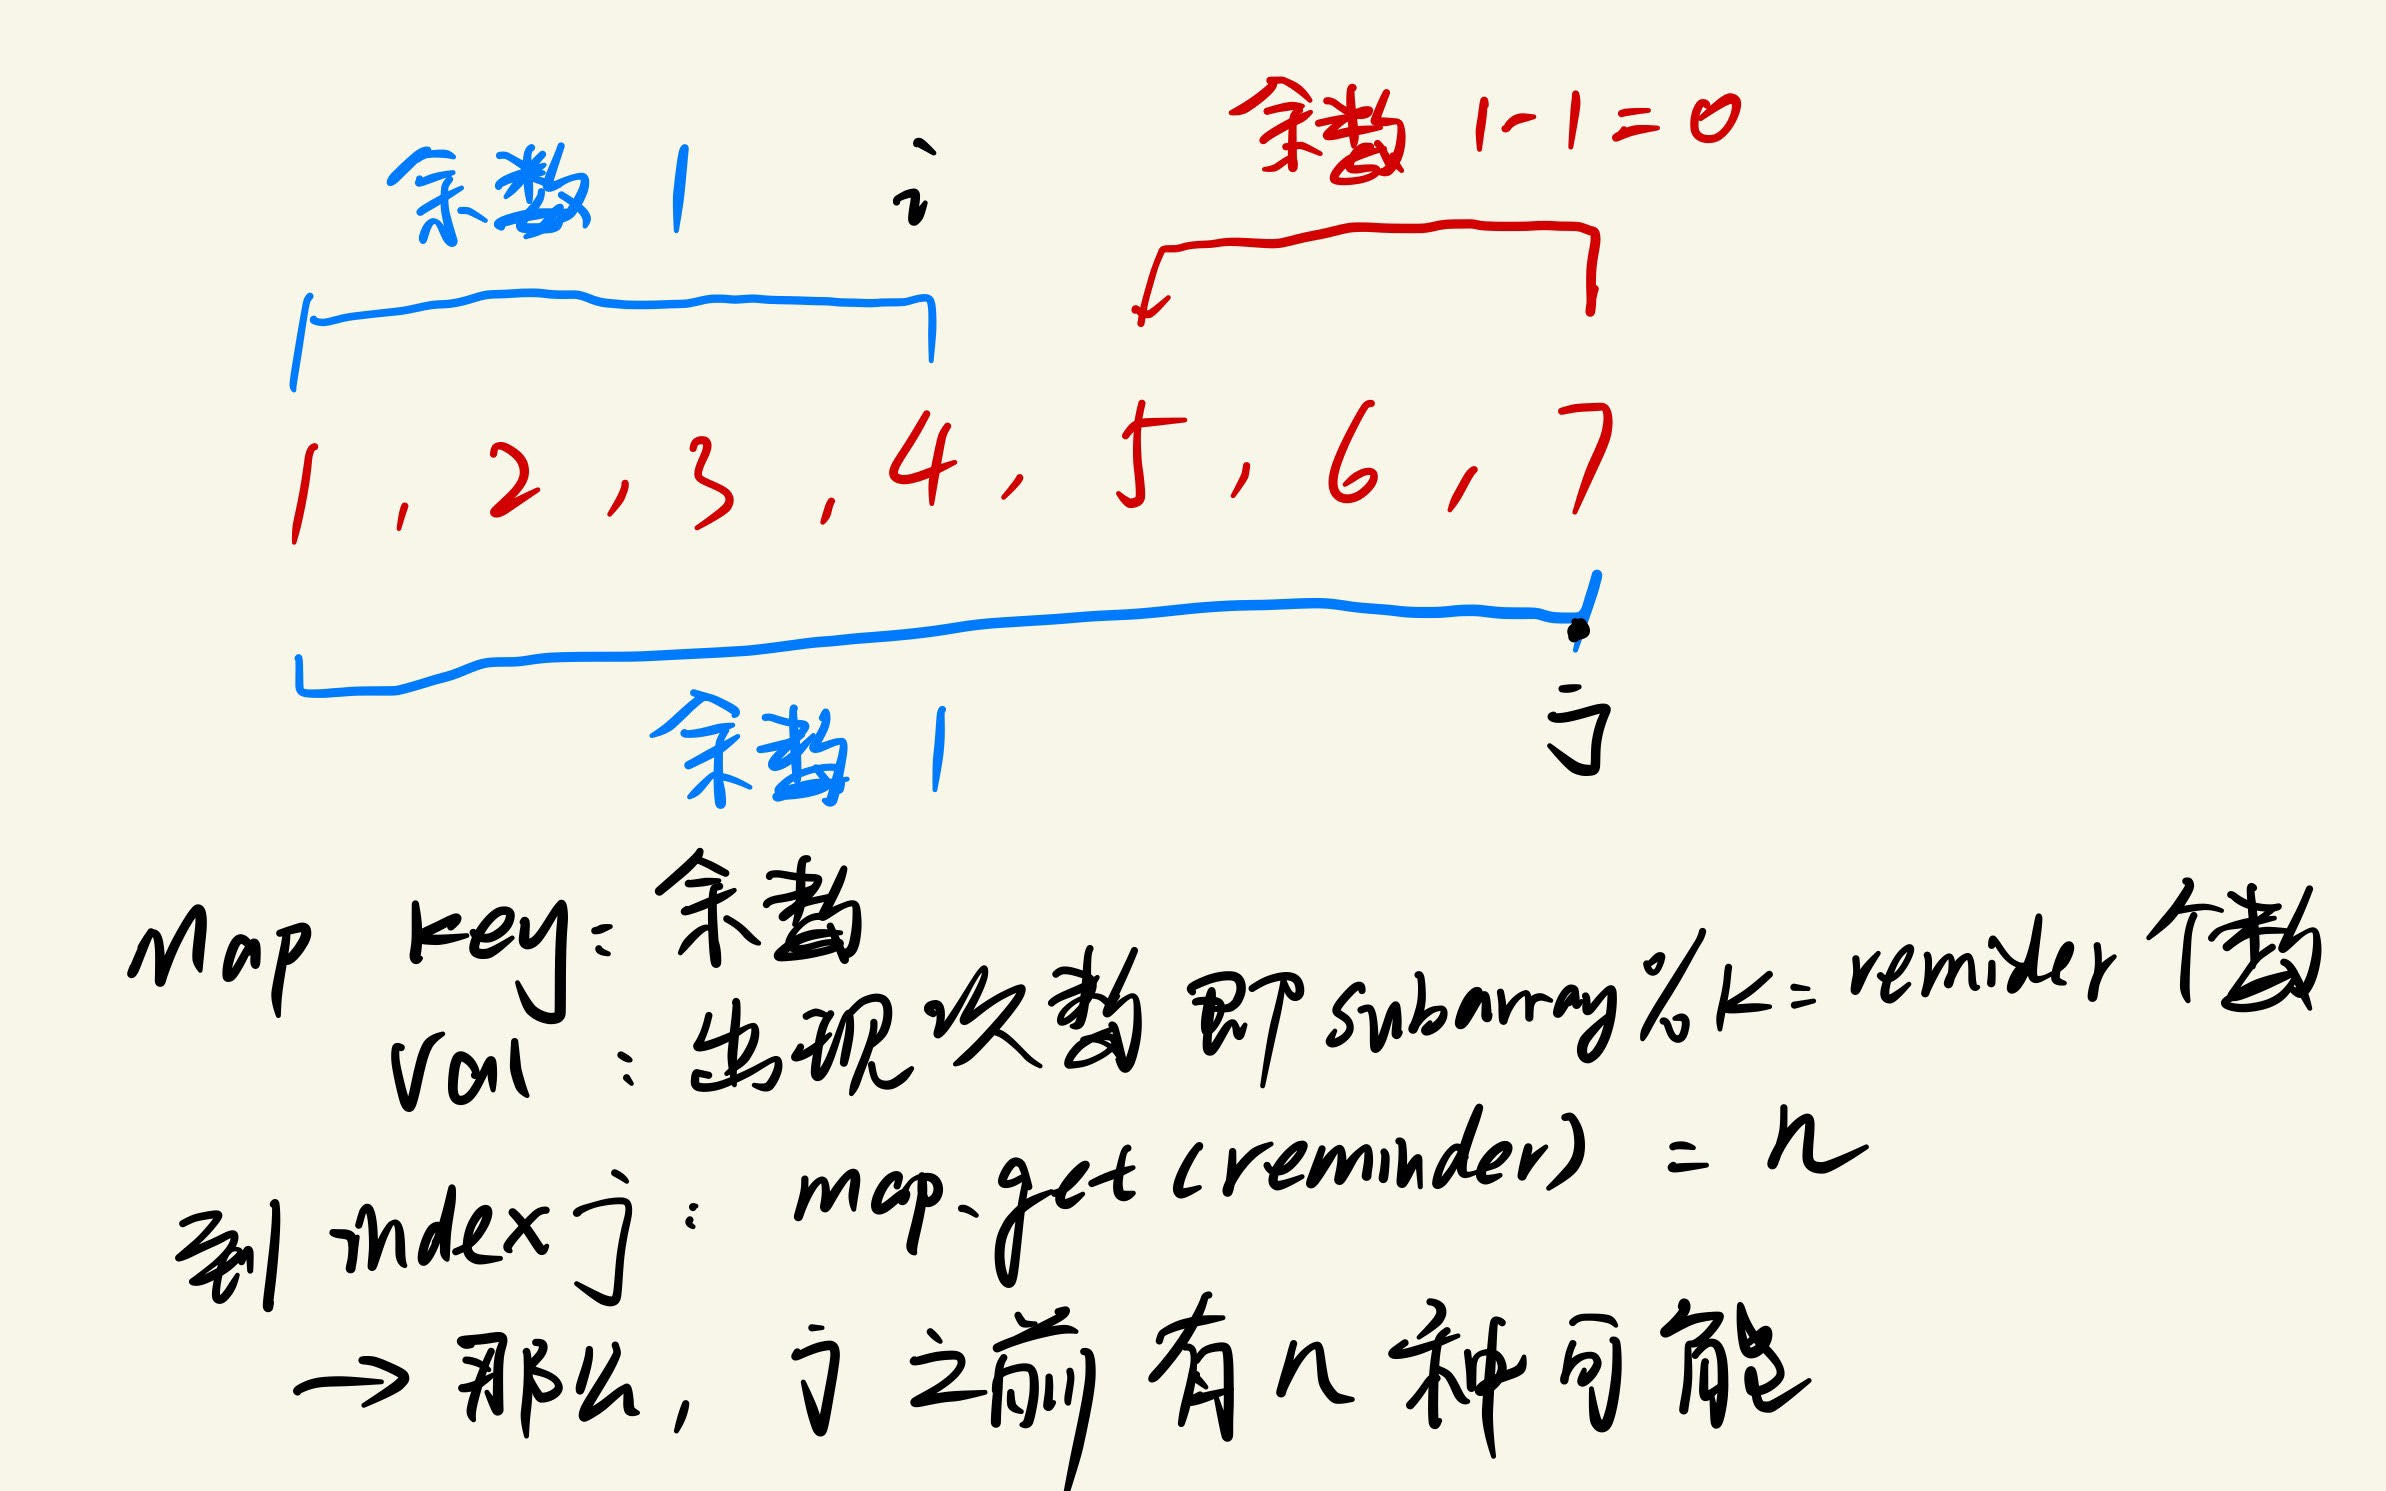 余数 1-1=0
余数 1
i
1, 2, 3, 4, 5, 6, 7
j
余数 1
Map key: 余数
val: 出现次数 即 subarray % k = reminder 个数
到 index j: map.get(reminder) = n
→ 那么, j 之前有 n 种可能